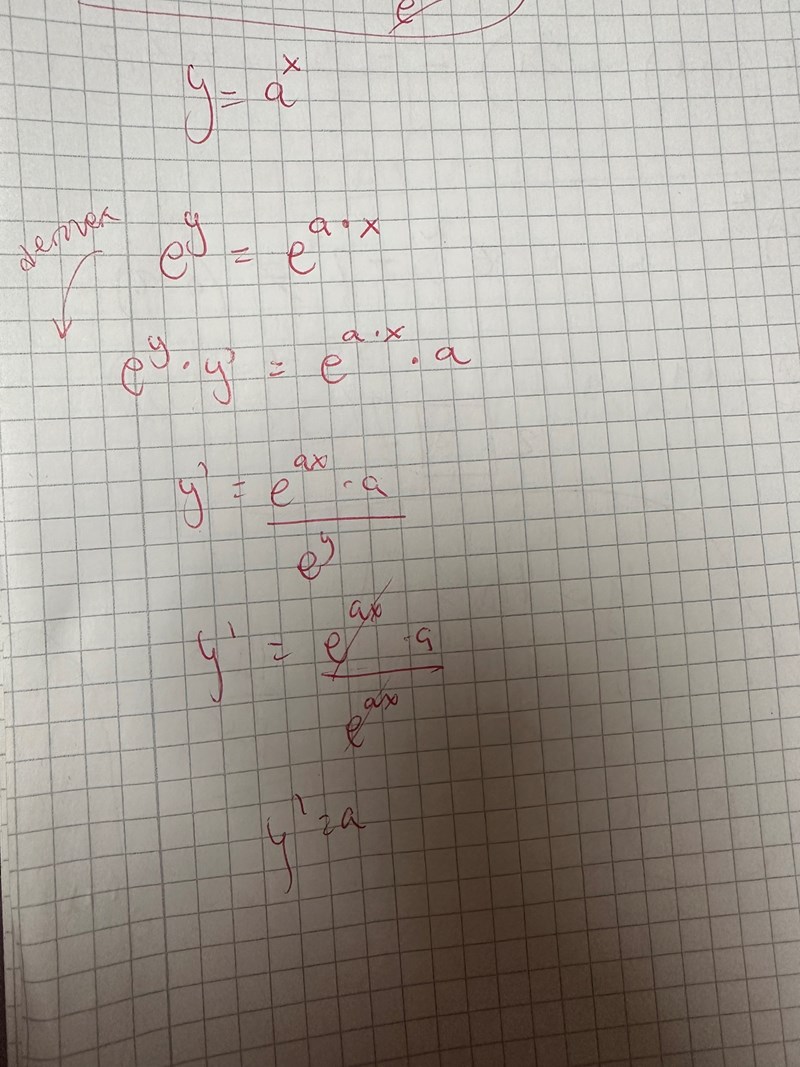 e
y = a^x
e^y = e^{a·x}
e^y · y' = e^{a·x} · a
y' = \frac{e^{ax} · a}{e^y}
y' = \frac{e^{ax} · a}{e^{ax}}
y' = a